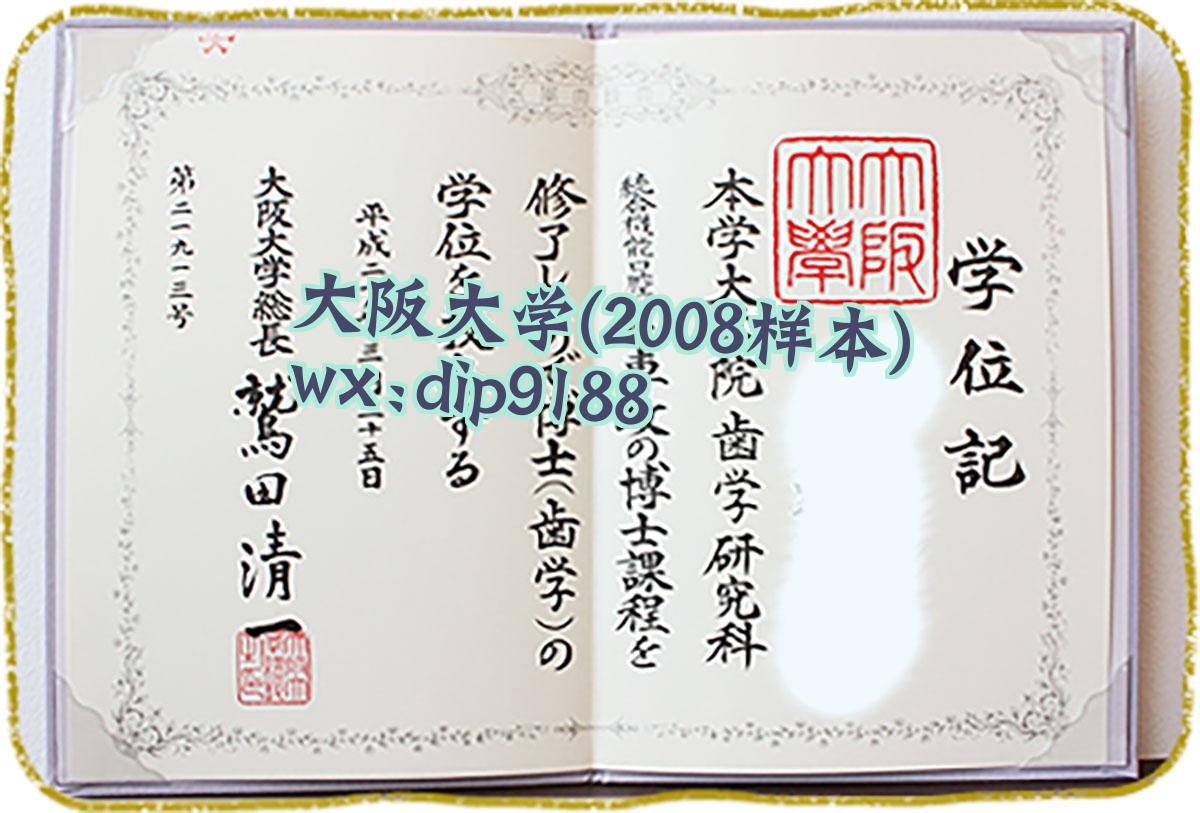 学位記
大阪大學
本学大 院歯学研究科
統合機能口 専攻の博士課程を
修了し 博士(歯学)の
学位を する
平成二 三月二十五日
大阪大学総長 鷲田清一
第二一九一三号
大阪大学(2008样本)
wx:dip9188